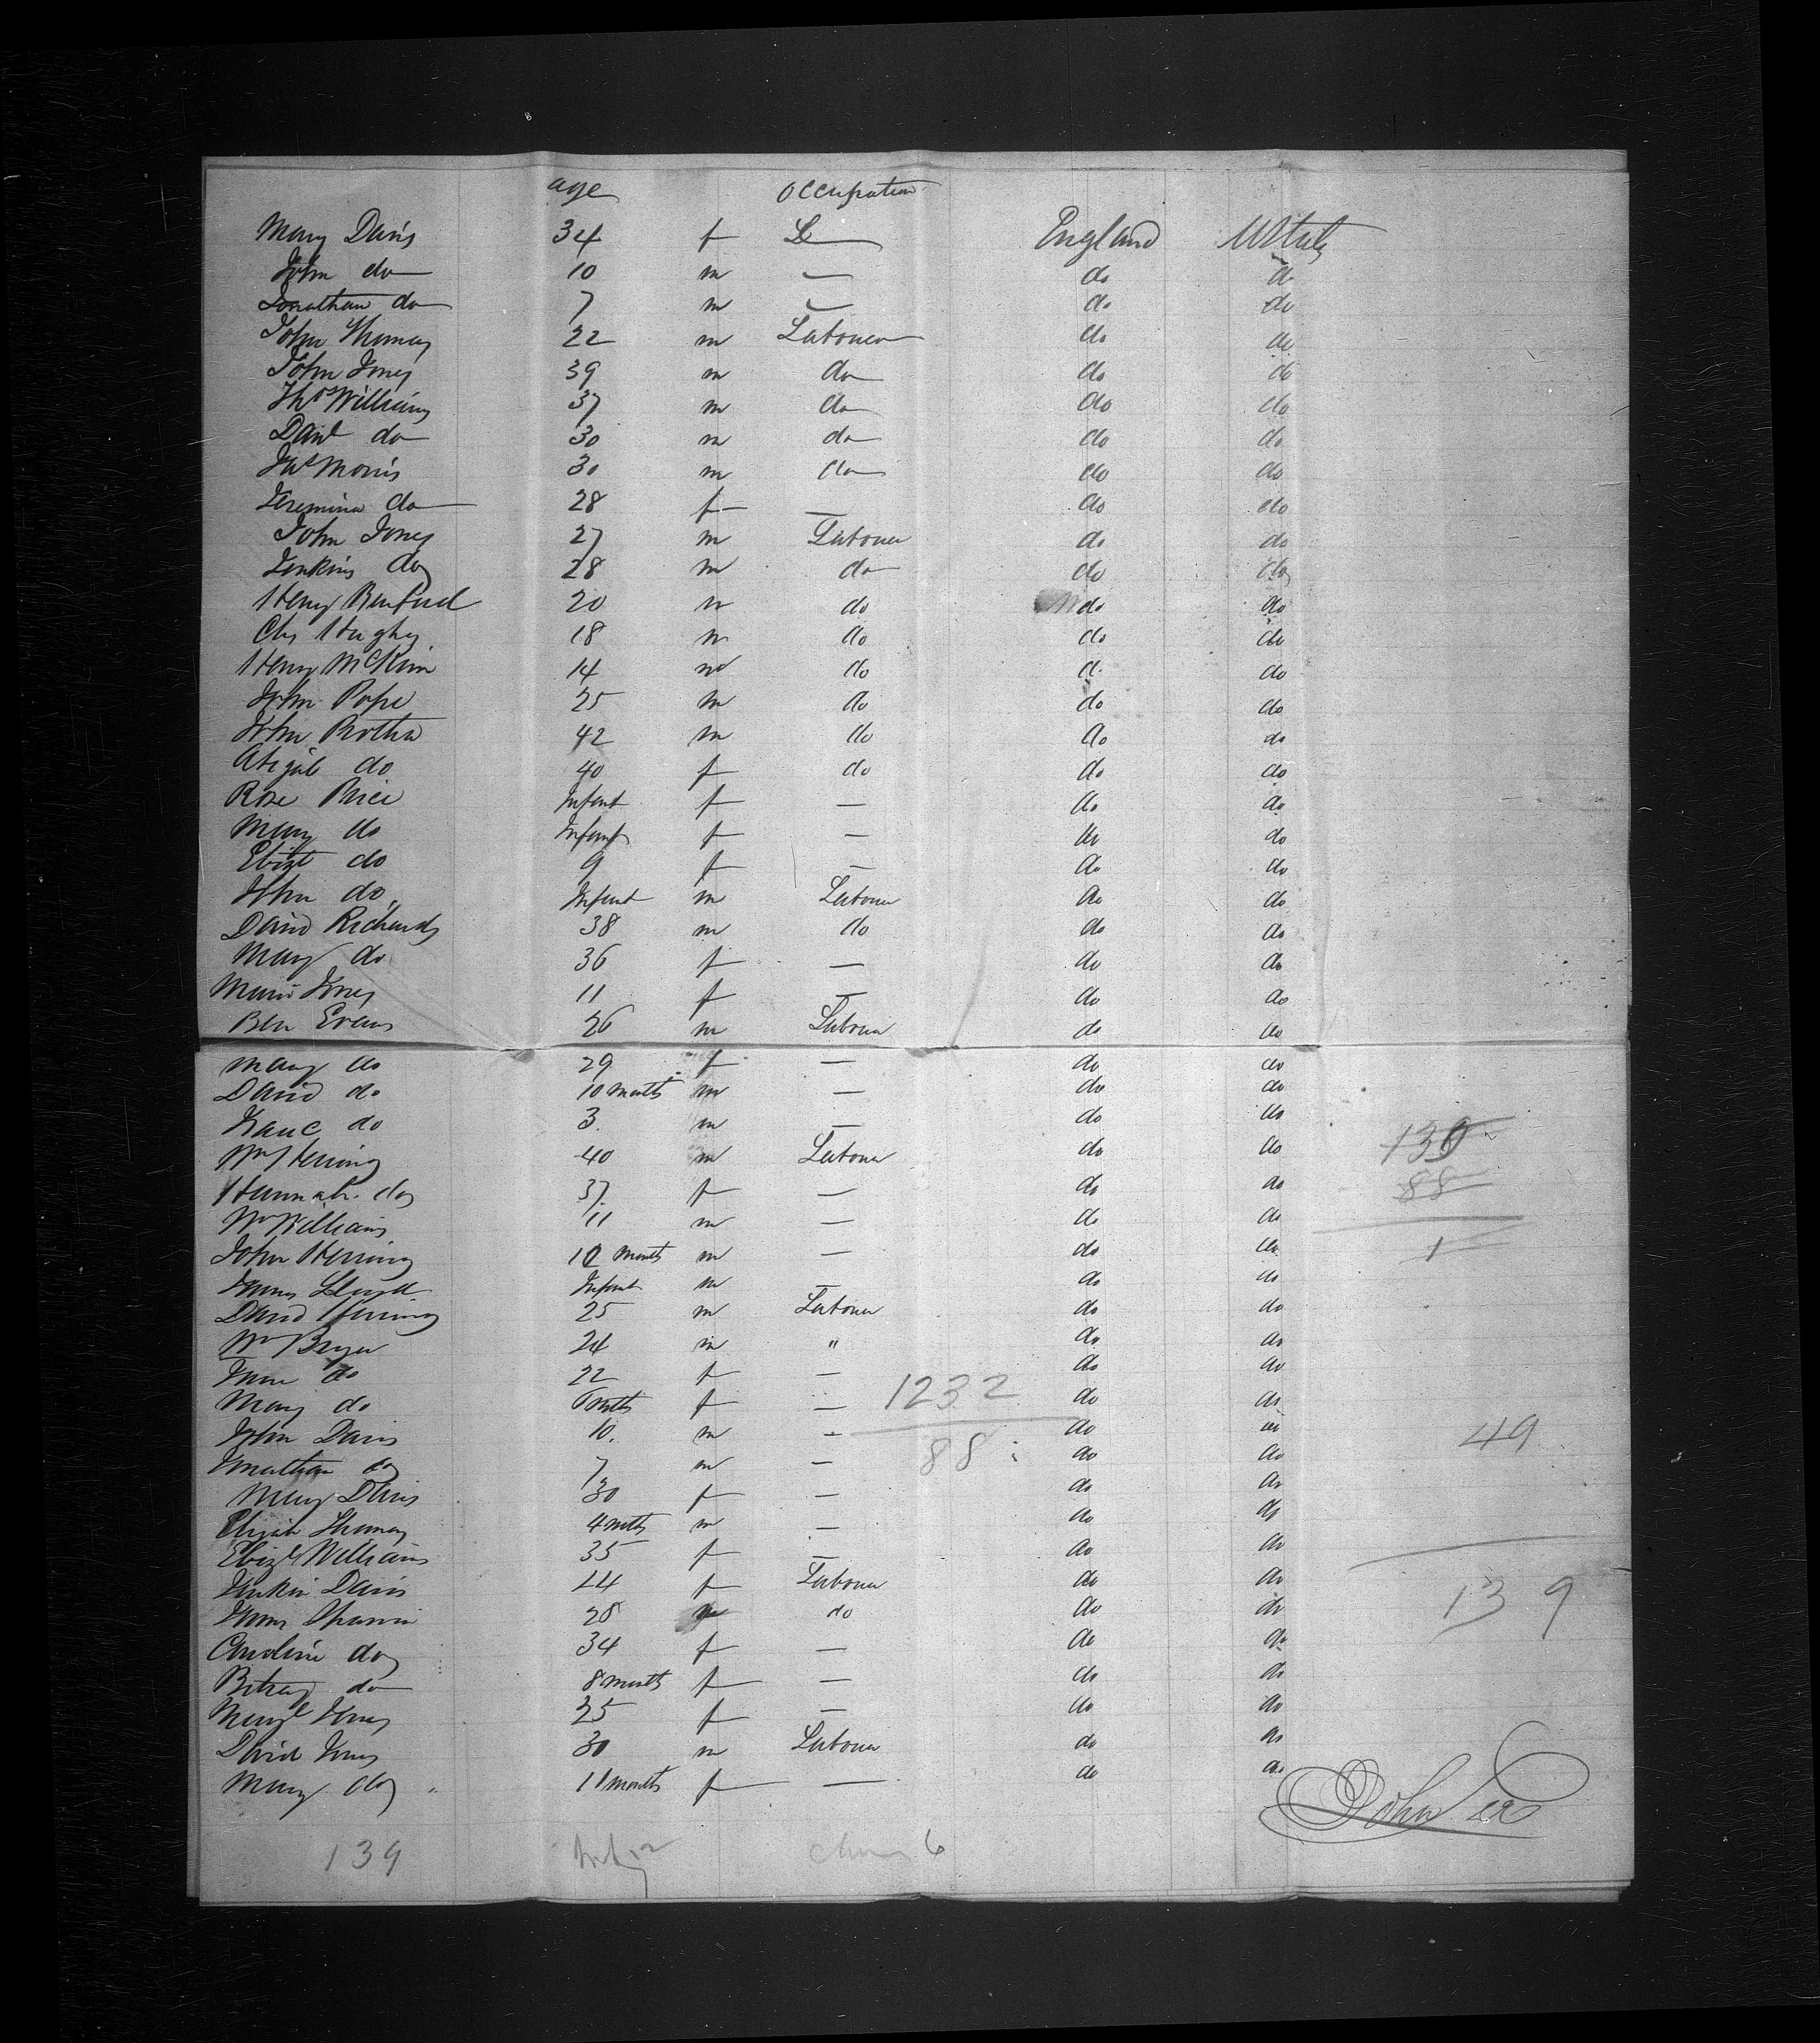 age Occupation
Mary Davis 34 f — England U States
John do 10 m — do do
Jonathan do 7 m — do do
John Thomas 22 m Labourer do do
John Jones 39 m do do do
Thos Williams 37 m do do do
Danl do 30 m do do do
Jas Morris 30 m do do do
Jeremina do 28 f — do do
John Jones 27 m Labourer do do
Jenkins do 28 m do do do
Henry 20 m do do do
Chs Hughes 18 m do do do
Henry McKim 14 m do do do
John Pope 25 m do do do
John 42 m do do do
Abigal do 40 f do do do
Rose Price Infant f — do do
Mary do Infant f — do do
Elizt do 9 f — do do
John do Infant m Labour do do
David Richards 38 m do do do
Mary do 36 f — do do
Maria Jones 11 f — do do
Ben Evans 26 m Labour do do
Mary do 29 f — do do
David do 10 months m — do do
Isaac do 3. m — do do
Wm Herring 40 m Labour do do 130
Hannah do 37. f — do do 88
Wm Williams 11 m — do do
John Herring 10 months m — do do 1
James Lloyd Infant m — do do
David Herring 25 m Labour do do
Wm Bryer 24 m " do do
Jane do 22 f — do do
Mary do mths f — 1232 do do
John Davis 10. m — do do 49
Jonathan do 7 m — 88 do do
Mary Davis 30 f — do do
Elijah Thomas 4 mths m — do do
Elizt Williams 35 f — do do
Jenkin Davis 24 f Labour do do 139
James 28 m do do do
Caroline do 34 f — do do
Betsey do 8 months f — do do
Jones 25 f — do do
David Jones 30 m Labour do do
Mary do 11 months f — do do
John
139 6